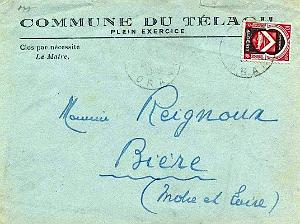 COMMUNE DU TÉLAGH
PLEIN EXERCICE
Clos par nécessité
Le Maire,
ORAN
Monsieur Reignoux
Bière
(Indre et Loire)